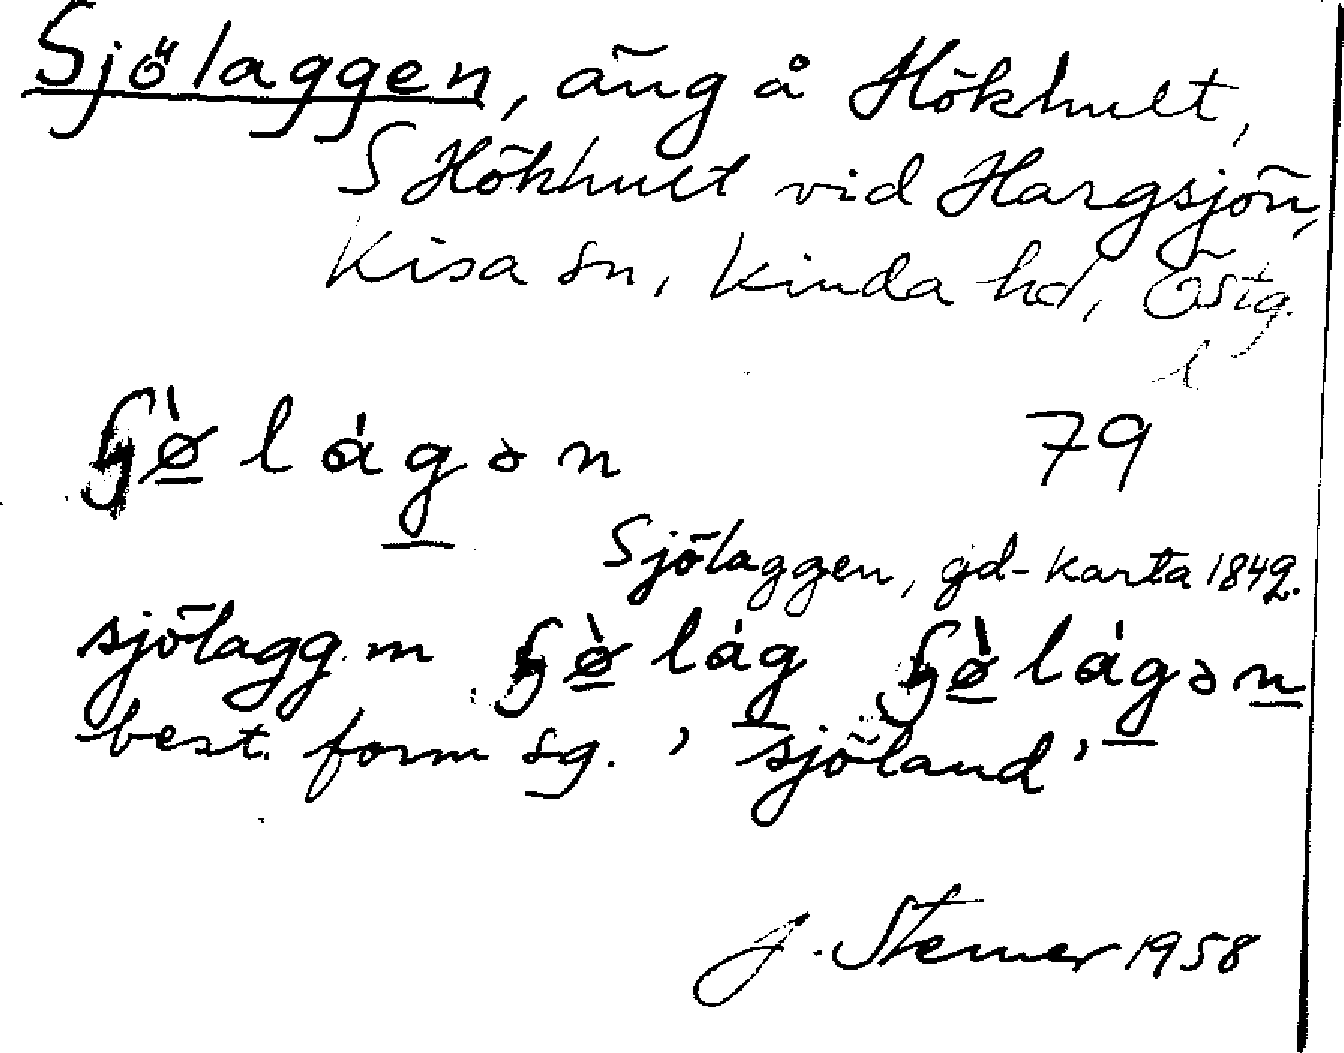 Sjölaggen, äng å Hökhult,
S Hökhult vid Hargsjön,
Kisa sn, Kinda hd, Östg.
l
ɧø̀lágən 79
Sjölaggen, gd-karta 1849.
sjölagg m ɧø̀lág ɧø̀lágən
best. form sg. 'sjöland'
J. 1958